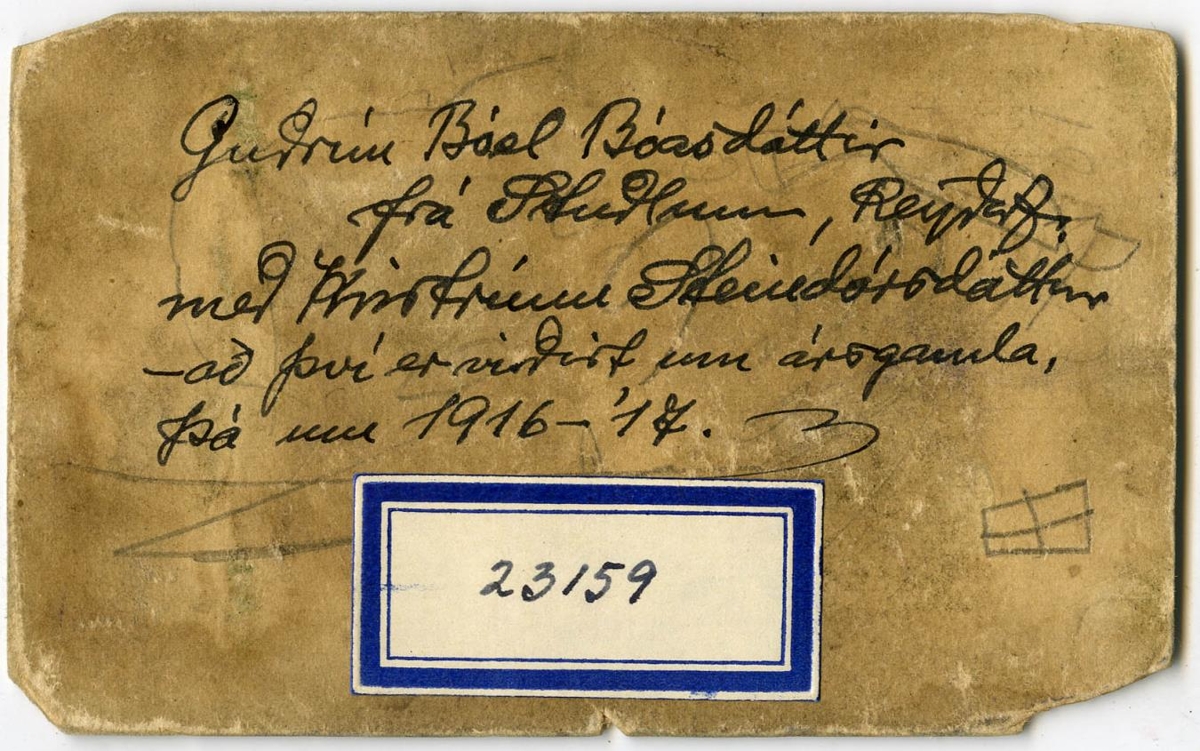 Guðrún Bóel Bóasdóttir
frá Stuðlum, Reyðarf.
með Kristrúnu Steindórsdóttur
– að því er virðist, um ársgamla,
þá um 1916–'17.
23159